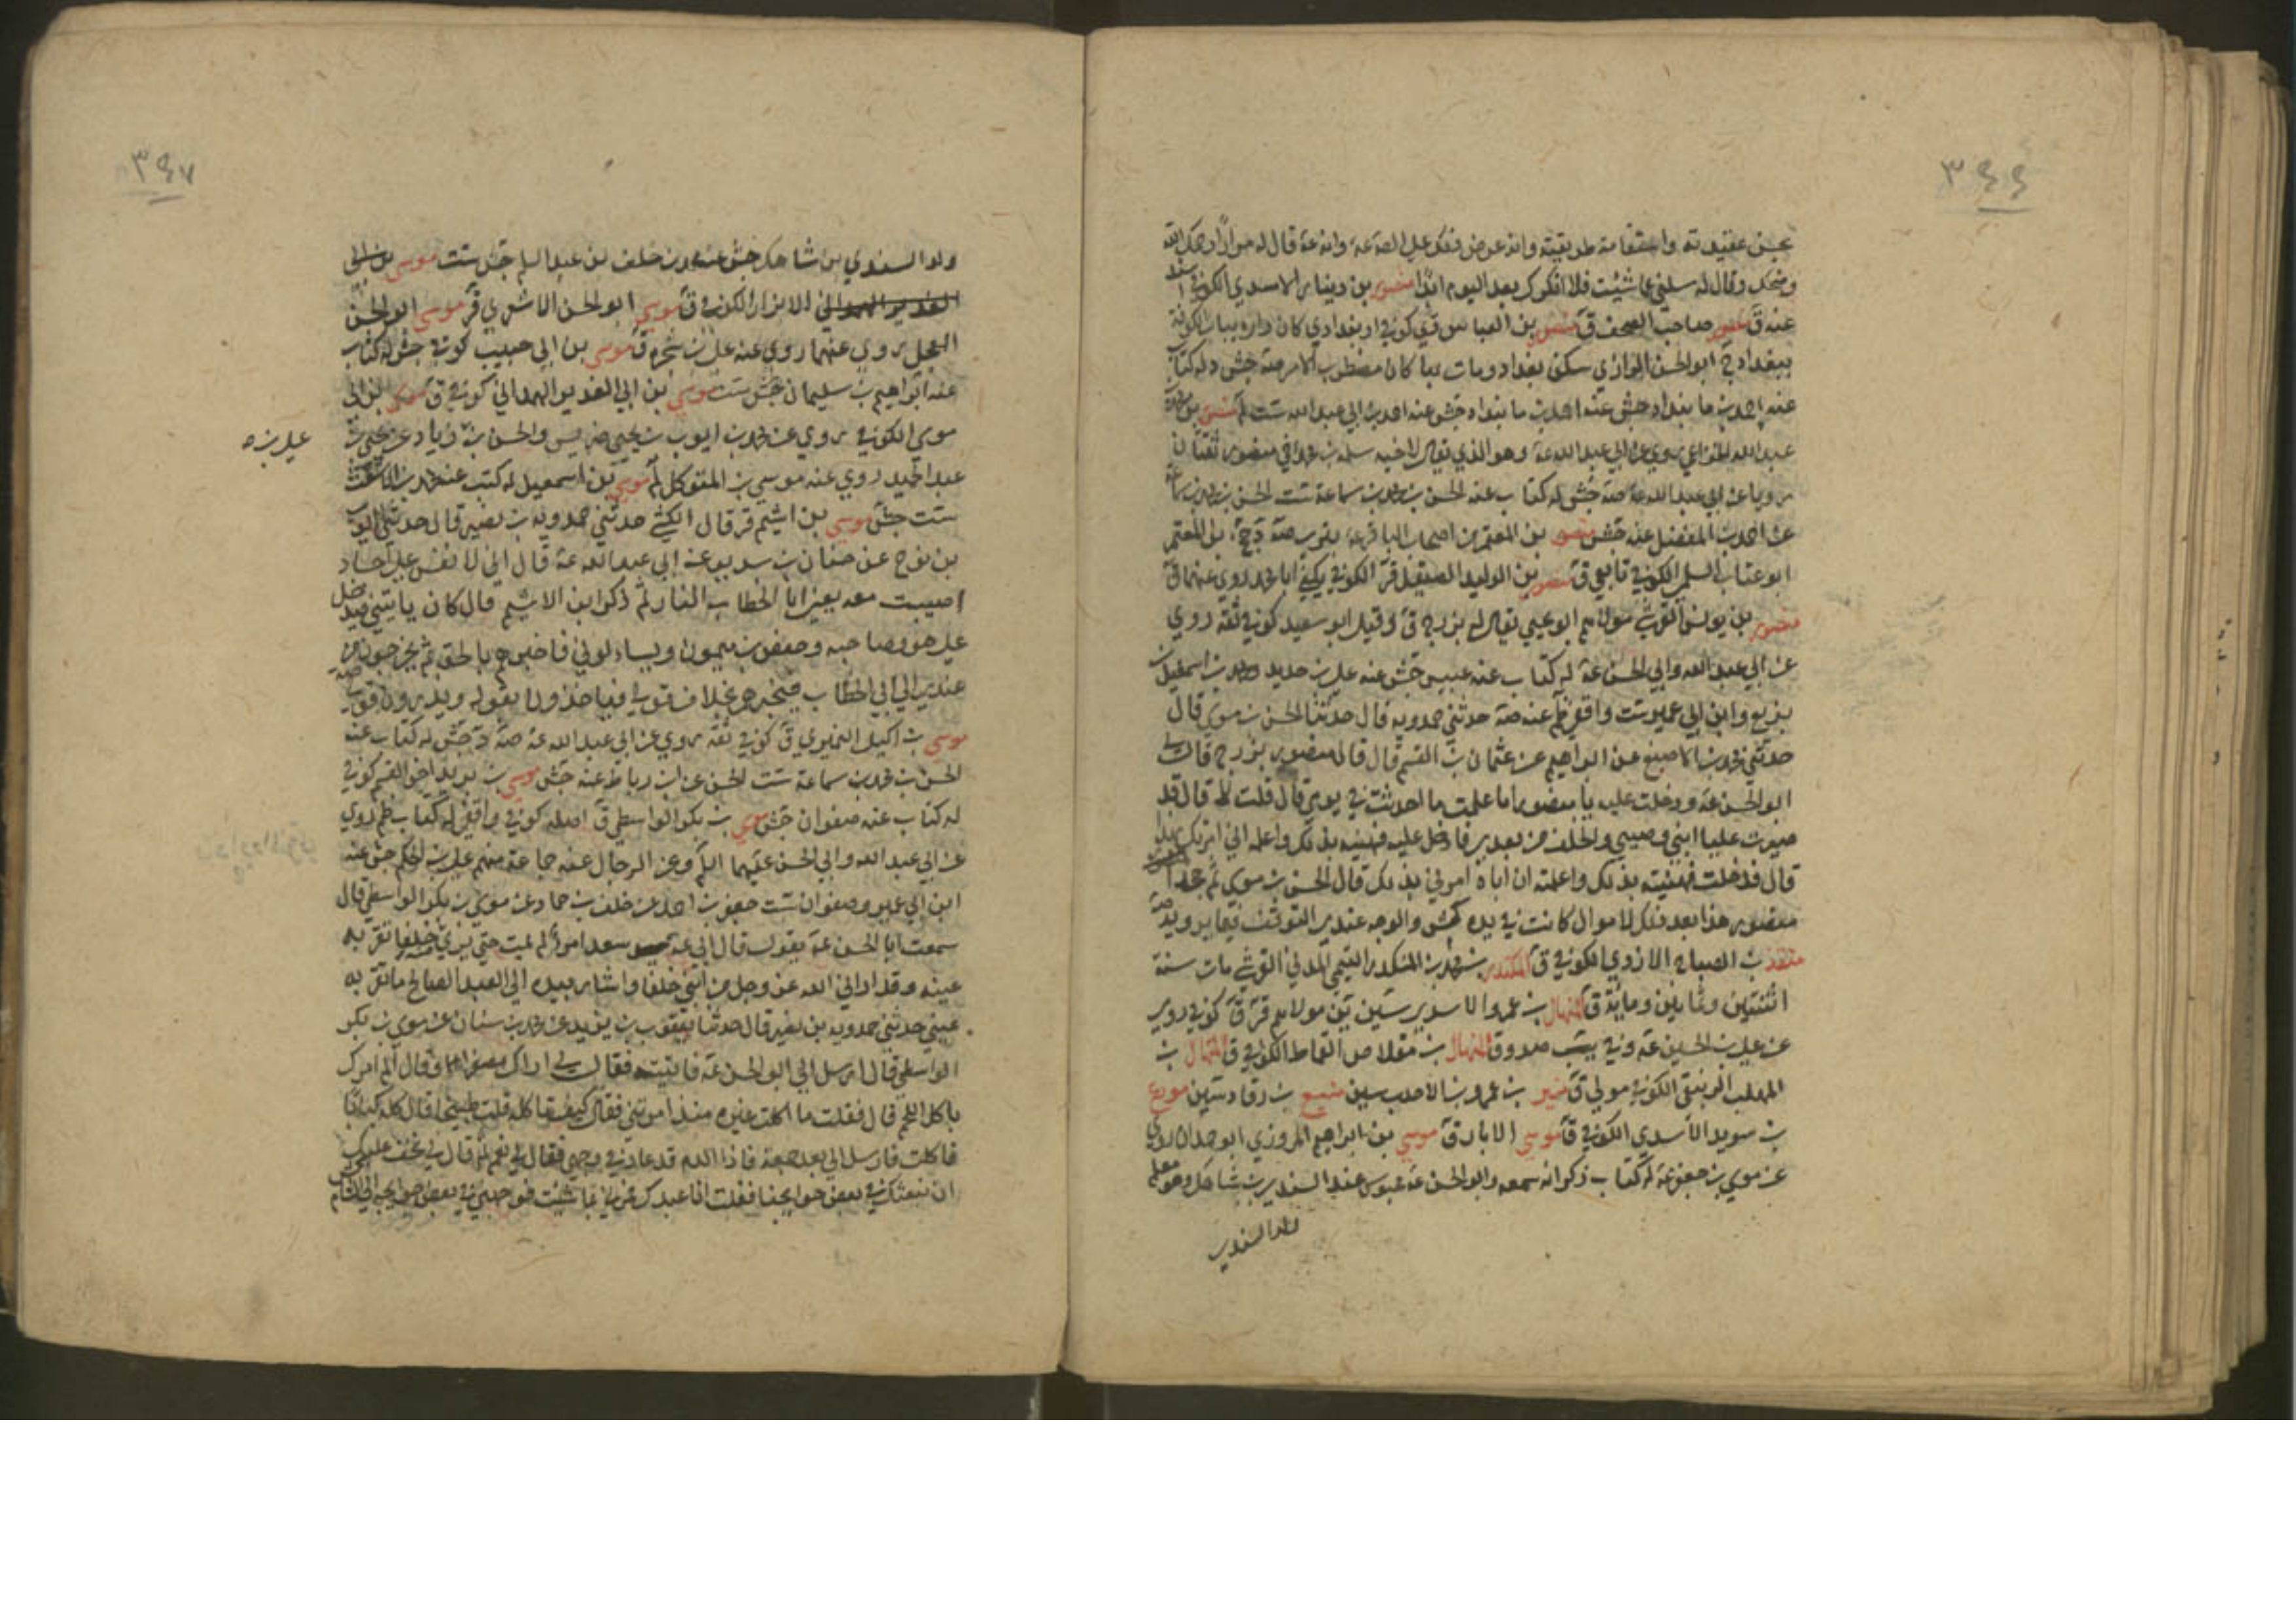 ٣٤٤
بحسن عقيدته واستقامة طريقته وانه عرض فدك على الصة عه وانه عة قال له مرارا رحمك الله
وضحك وقال له سلني ما شئت فلا انكرك بعد اليوم ابدا منصور بن دينار الاسدي الكوفي اسند
عنه ق منصور صاحب الصحف ق منصور بن العباس كوفي او بغدادي كان داره بباب الكوفة
ببغداد ابو الحسن الرازي سكن بغداد ومات بها كان مضطرب الامر صة جش وله كتاب
عنه احمد بن ما بنداد جش عنه احمد بن ابي عبد الله ست لم منصور بن
عبد الله الخزاعي روى عن ابي عبد الله عة وهو الذي يقال لاخيه سلمة بن محمد اخي منصور ثقتان
رويا عن ابي عبد الله عة صة جش له كتاب عنه الحسن بن محمد بن سماعة ست الحسن بن محمد بن سماعة
عن احمد بن المفضل عنه جش منصور بن المعتمر من اصحاب الباقر عه بتري صة بن المعتمر
ابو عتاب السلمي الكوفي تابعي ق منصور بن الوليد الصيقل قر الكوفي يكنى ابا محمد روى عنهما ق
منصور بن يونس القرشي مولاهم ابو يحيى يقال له بزرج ق وقيل ابو سعيد كوفي ثقة روى
عن ابي عبد الله وابي الحسن عة له كتاب عنه عبيس جش عنه علي بن حديد ومحمد بن اسمعيل بن
بزيع وابن ابي عمير ست واقفي ظم عنه صة حدثني حمدويه قال حدثنا الحسن بن موسى قال
حدثني محمد بن الاصبغ عن ابراهيم عن عثمان بن القسم قال قال منصور بزرج قال لي
ابو الحسن عة ودخلت عليه يا منصور اما علمت ما احدثت في يومي قال قلت لا قال قد
صيرت عليا ابني وصيي والخلف من بعدي فادخل عليه فهنئه بذلك واعلمه اني امرتك بهذا
قال فدخلت فهنيته بذلك واعلمته ان اباه امرني بذلك قال الحسن بن موسى ثم جحد
منصور هذا بعد ذلك لاموال كانت في يده كش والوجه عندي التوقف فيما يرويه صة
منقذ بن الصباح الازدي الكوفي ق المنكدر بن محمد بن المنكدر التيمي المدني القرشي مات سنة
اثنتين وثمانين ومائة ق المنهال بن عمرو الاسدي سين ين مولاهم قر ق كوفي روى
عن علي بن الحسين عة وفي صدوق المنهال بن مقلاص القماط الكوفي ق المنهال بن
المهلب الكوفي مولى ق منير بن عمرو بن الاحدب سين منيع بن رقاد سين مورع
بن سويد الاسدي الكوفي ق موسى الابار ق موسى بن ابراهيم المروزي ابو حمران روى
عن موسى بن جعفر عة له كتاب ذكر انه سمعه وابو الحسن عة محبوس عند السندي بن شاهك وهو معلم
ولد السندي
٣٤٧
ولد السندي بن شاهك جش عنه محمد بن خلف بن عبد السلم جش ست موسى بن ابي
الغدير الهمداني الانزاري الكوفي ق موسى ابو الحسن الاشعري قر موسى ابو الحسن
العجلي روى عنهما روى عنه علي بن شجرة ق موسى بن ابي حبيب كوفي جش له كتاب
عنه ابراهيم بن سليمان جش ست موسى بن ابي الغدير الهمداني كوفي ق موسى بن ابي
موسى الكوفي روى عن محمد بن ايوب بن يحيى ضريس والحسن بن زياد عن يحيى بن
علي بن ه
عبد الحميد روى عنه موسى بن المتوكل لم موسى بن اسمعيل له كتب عنه محمد بن الاشعث
ست جش موسى بن اشيم قر قال الكشي حدثني حمدويه بن نصير قال حدثني ايوب
بن نوح عن حنان بن سدير عن ابي عبد الله عة قال اني لا نفس على اجساد
اصيبت معه يعني ابا الخطاب النار ثم ذكر ابن الاشيم قال كان ياتيني فيدخل
علي هو وصاحبه وحفص بن ميمون ويسالوني فاخبرهم بالحق ثم يخرجون من
عندي الى ابي الخطاب فيخبرهم بخلاف قولي فياخذون بقوله ويذرون قولي صة
موسى بن اكيل النميري ق كوفي ثقة روى عن ابي عبد الله عة صة جش له كتاب عنه
الحسن بن محمد بن سماعة ست الحسن عن ابن رباط عنه جش موسى بن بريد اخو القسم كوفي
له كتاب عنه صفوان جش موسى بن بكر الواسطي ق اصله كوفي واقفي له كتاب ظم روى
عن ابي عبد الله وابي الحسن عليهما السلم وعن الرجال عنه جماعة منهم علي بن الحكم جش عنه
ابن ابي عمير وصفوان ست جعفر بن احمد عن خلف بن حماد عن موسى بن بكر الواسطي قال
سمعت ابا الحسن عة يقول قال ابي عة سعد امرؤ لم يمت حتى يرى خلفا تقر به
عينه وقد اراني الله عز وجل من ابني خلفا واشار بيده الى العبد الصالح ما تقر به
عيني حدثني حمدويه بن نصير قال حدثنا يعقوب بن يزيد عن محمد بن سنان عن موسى بن بكر
الواسطي قال ارسل الي ابو الحسن عة فاتيته فقال لي اراك مصفرا وقال الم امرك
باكل اللحم قال فقلت ما اكلت غيره منذ امرتني فقال كيف تاكله قلت طبيخا قال كله كبابا
فاكلت فارسل الي بعد جمعة فاذا الدم قد عاد في وجهي فقال لي نعم ثم قال لي يخف عليك
ان نبعثك في بعض حوايجنا فقلت انا عبدك فمرني بما شئت فوجهني في بعض حوايجه الى الشام